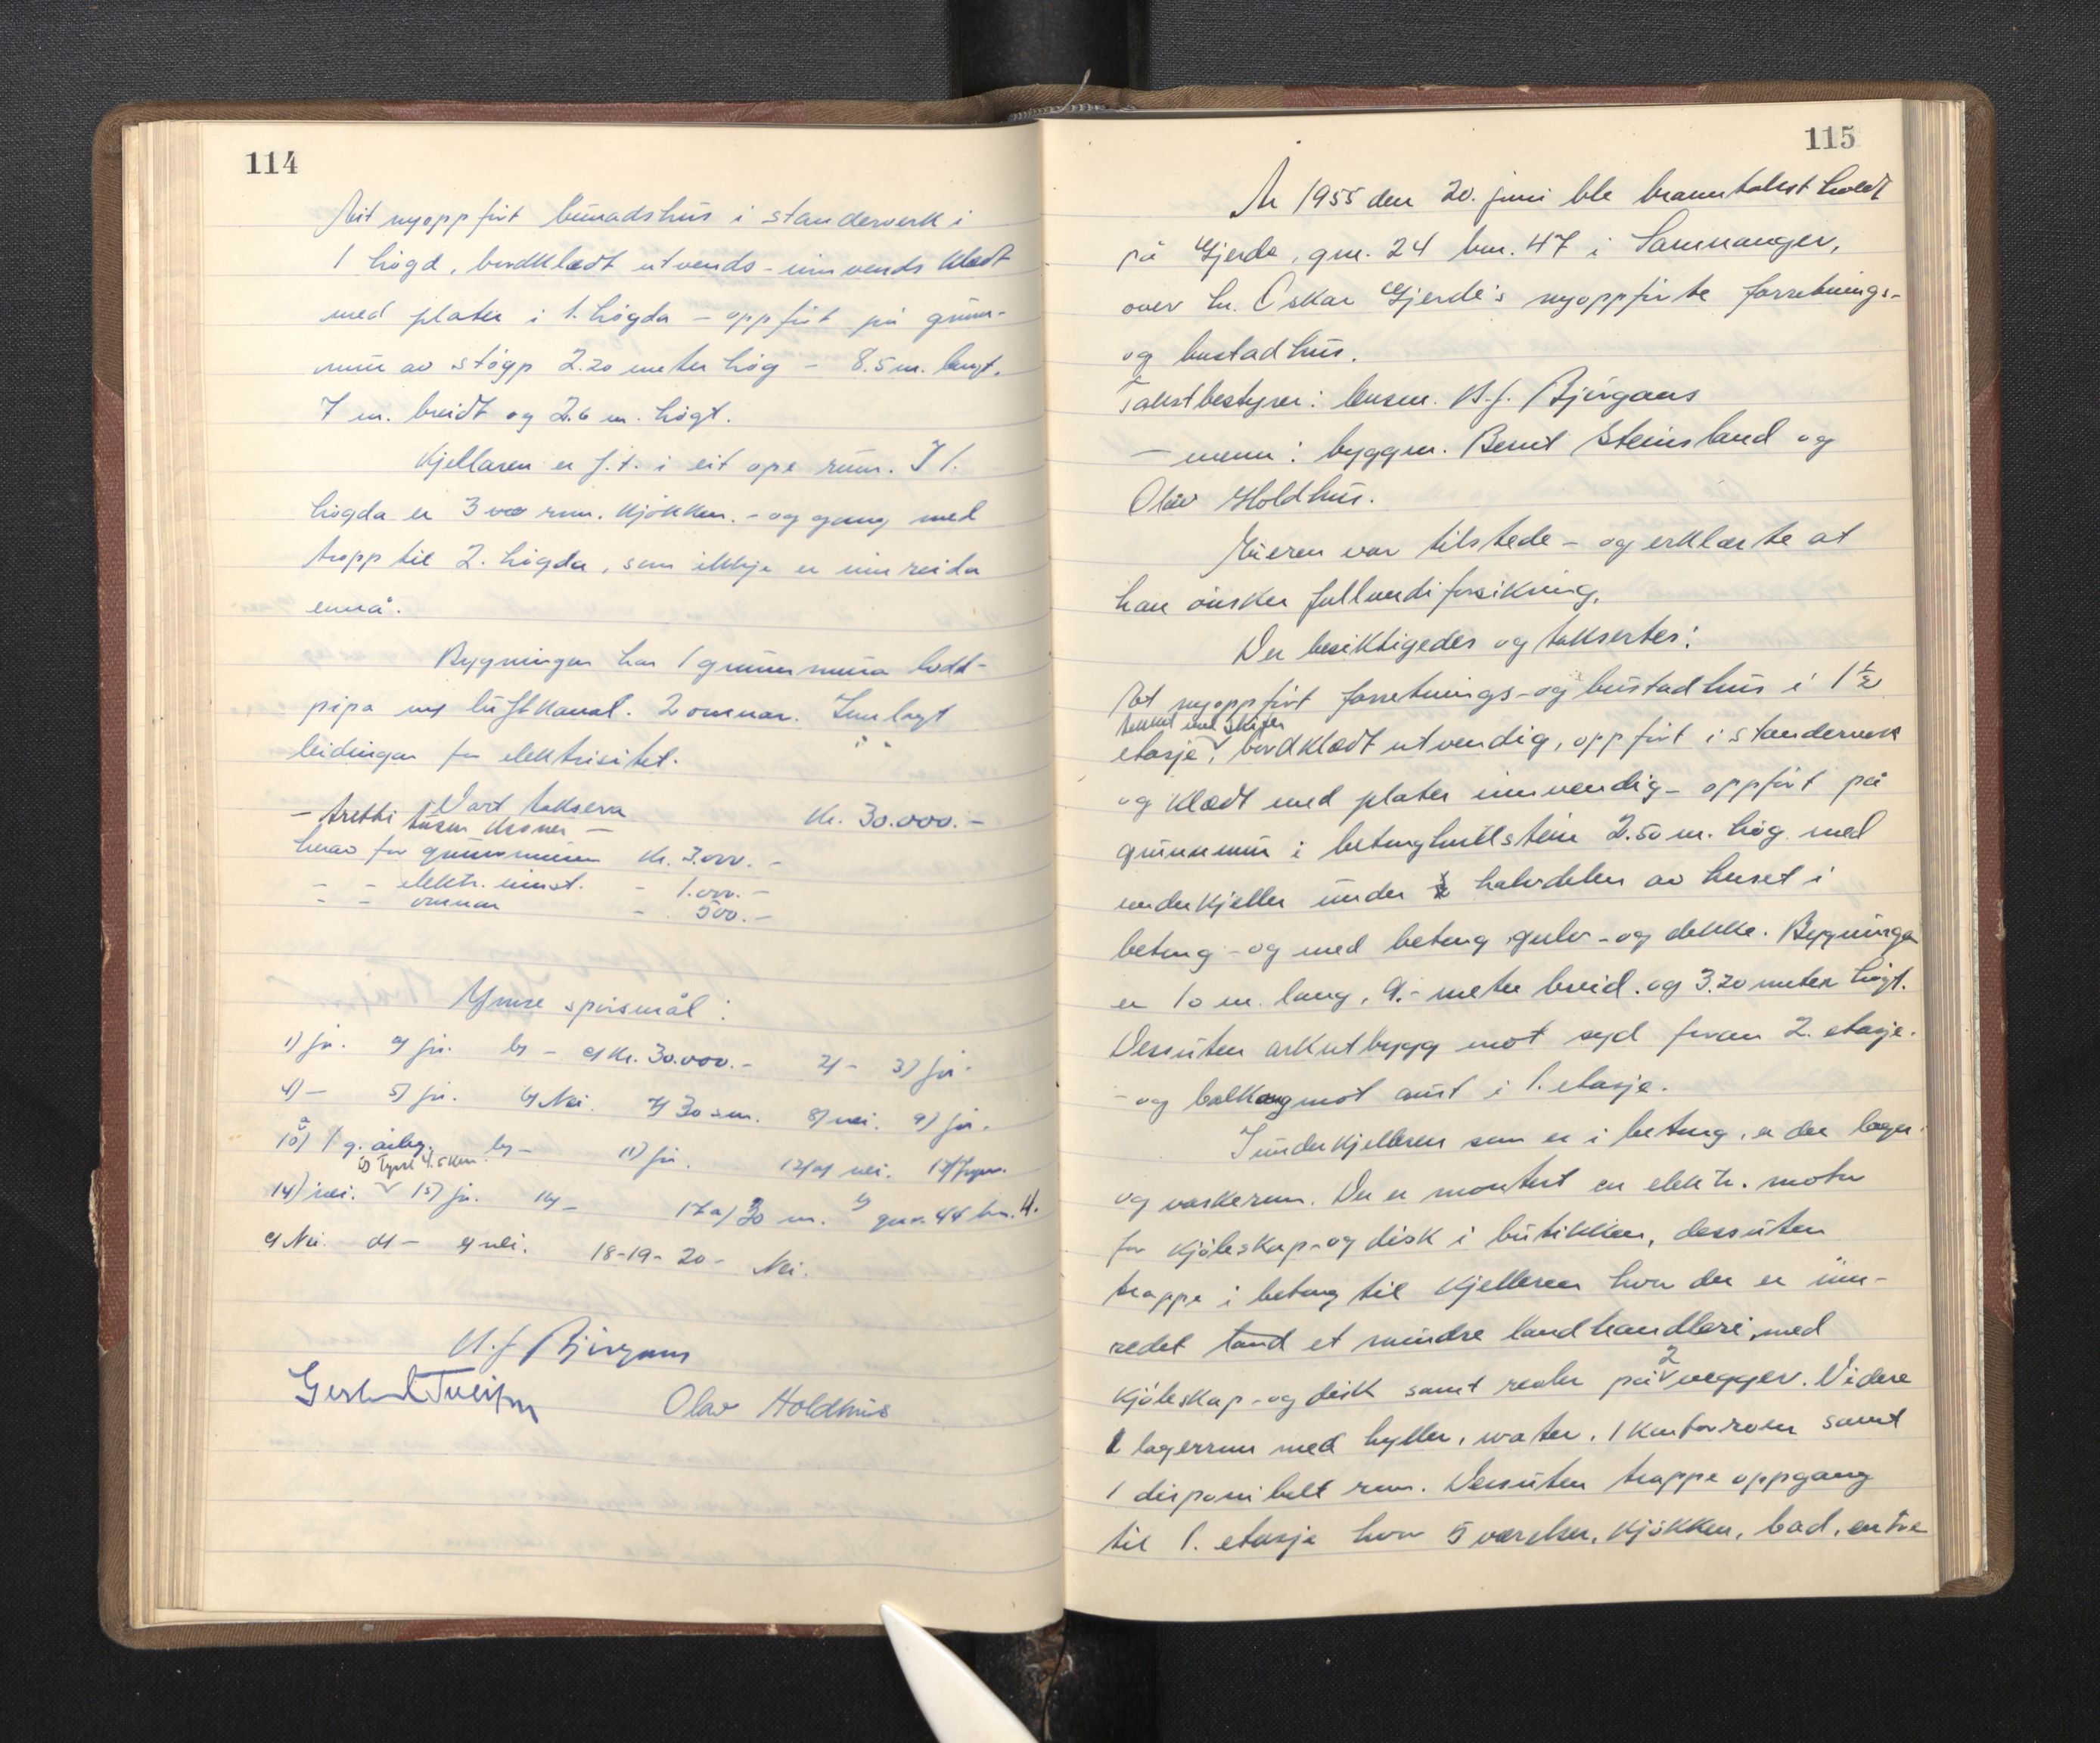 114
Eit nyoppført bunadshus i standerverk i
1 høgd, bordklædt utvends - innvends klædt
med plater i 1. høgda - oppført på grunn-
mur av støyp 2.20 meter høg - 8.5 m. langt.
7 m. breidt og 2.6 m. høgt.
Kjellaren er f.t. i eit ope rum. I 1.
høgda er 3 rum. kjøkken. - og gang med
trapp til 2. høgda, som ikkje er innreida
ennå.
Bygningen har 1 grunnmura lodd-
pipa m/ luftkanal. 2 omnar. Innlagt
leidingar for elektrisitet.
Vart taksera Kr. 30.000.-
- tretti tusen kroner -
herav for grunnmuren kr. 3.000.-
- - elektr. innst. - 1.000.-
- - omnar - 500.-
Ymse spørsmål:
1) ja. a) ja. b) - c) Kr. 30.000.- 2) - 3) ja.
4) - 5) ja. 6) Nei. 7) 30 sm. 8) nei. 9) ja.
10) a) 1 g. årleg. b) - 11) ja. 12) a) nei.
b) Tysse 4.5 km
14) nei. 15) ja. 16) - 17 a) 30 m. b) gnr. 44 bnr. 4.
c) Nei. d) - e) nei. 18-19-20- Nei.
N. J. Bjørgaas
Olav Holdhus
115
År 1955 den 20. juni ble branntakst holdt
på Gjerde, gnr. 24 bnr. 47 i Samnanger,
over hr. Oskar Gjerde's nyoppførte forretnings-
og bustadhus.
Takstbestyrer: lensm. N. J. Bjørgaas
- menn: byggm. Bernt Steinsland og
Olav Holdhus.
Eieren var tilstede - og erklærte at
han ønsker fullverdiforsikring.
Der besiktigedes og taksertes:
Et nyoppført forretnings- og bustadhus i 1 1/2
tekket med skifer
etasje, bordklædt utvendig, oppført i standerverk
og klædt med plater innvendig - oppført på
grunnmur i betonghullstein 2.50 m. høg med
underkjeller under halvdelen av huset i
betong - og med betong gulv - og dekke. Bygningen
er 10 m. lang, 9.- meter breid. og 3.20 meter høgt.
Dessuten arkutbygg mot syd foran 2. etasje.
- og balkong mot aust i 1. etasje.
I underkjelleren som er i betong, er der lager
og vaskerum. Der er montert en elektr. motor
for kjøleskap - og disk i butikken, dessuten
trappe i betong til kjelleren hvor der er inn-
redet et mindre landhandleri med
kjøleskap - og disk samt reoler på 2 vegger. Videre
1 lagerrum med hyller, water, 1 kontorrom samt
1 disponibelt rum. Dessuten trappe oppgang
til 1. etasje hvor 5 værelser, kjøkken, bad, entre